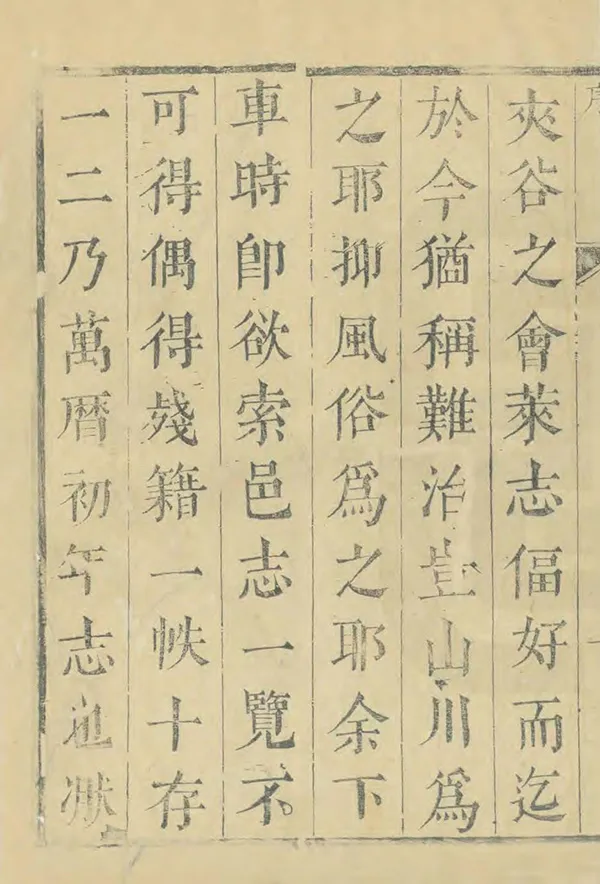 序
一
夾谷之會萊志偪好而迄
於今猶稱難治豈山川為
之耶抑風俗為之耶余下
車時卽欲索邑志一覽不
可得偶得殘籍一帙十存
一二乃萬曆初年志也然